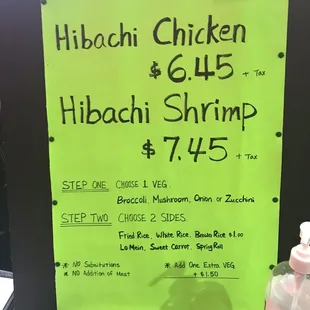 Hibachi Chicken
$ 6.45 + Tax
Hibachi Shrimp
$ 7.45 + Tax
STEP ONE CHOOSE 1 VEG.
Broccoli, Mushroom, Onion or Zucchini
STEP TWO CHOOSE 2 SIDES.
Fried Rice, White Rice, Brown Rice $1.00
Lo Mein, Sweet Carrot, Spring Roll
* NO Substitutions * Add One Extra VEG
* NO Addition of Meat + $1.50